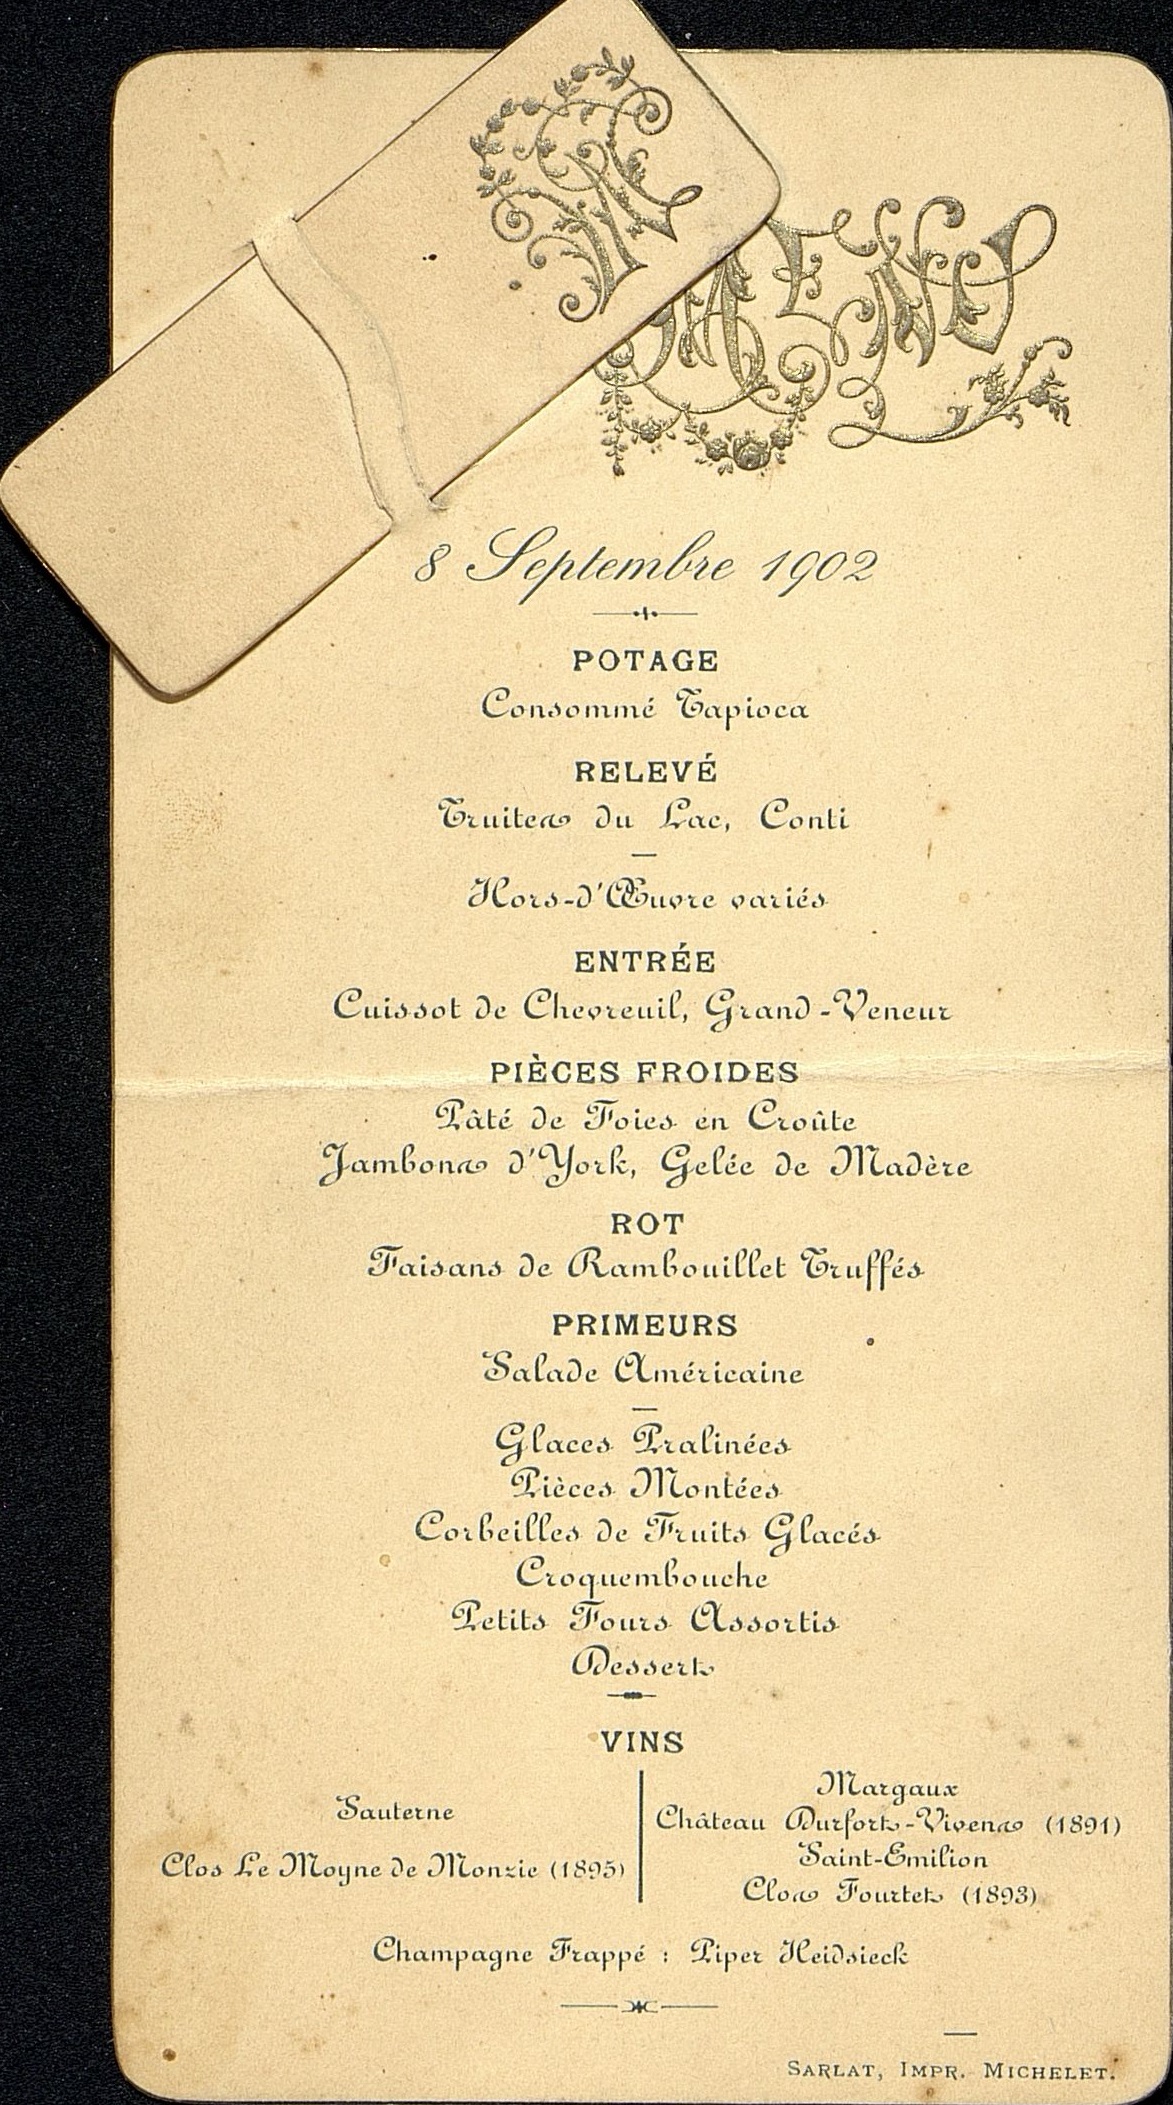 MENU
8 Septembre 1902
POTAGE
Consommé Tapioca
RELEVÉ
Truites du Lac, Conti
Hors-d'Œuvre variés
ENTRÉE
Cuissot de Chevreuil, Grand-Veneur
PIÈCES FROIDES
Pâté de Foies en Croûte
Jambons d'York, Gelée de Madère
ROT
Faisans de Rambouillet Truffés
PRIMEURS
Salade Américaine
Glaces Pralinées
Pièces Montées
Corbeilles de Fruits Glacés
Croquembouche
Petits Fours Assortis
Dessert
VINS
Sauterne
Clos Le Moyne de Monzie (1895)
Margaux
Château Durfort-Vivens (1891)
Saint-Emilion
Clos Fourtet (1893)
Champagne Frappé : Piper Heidsieck
SARLAT, IMPR. MICHELET.